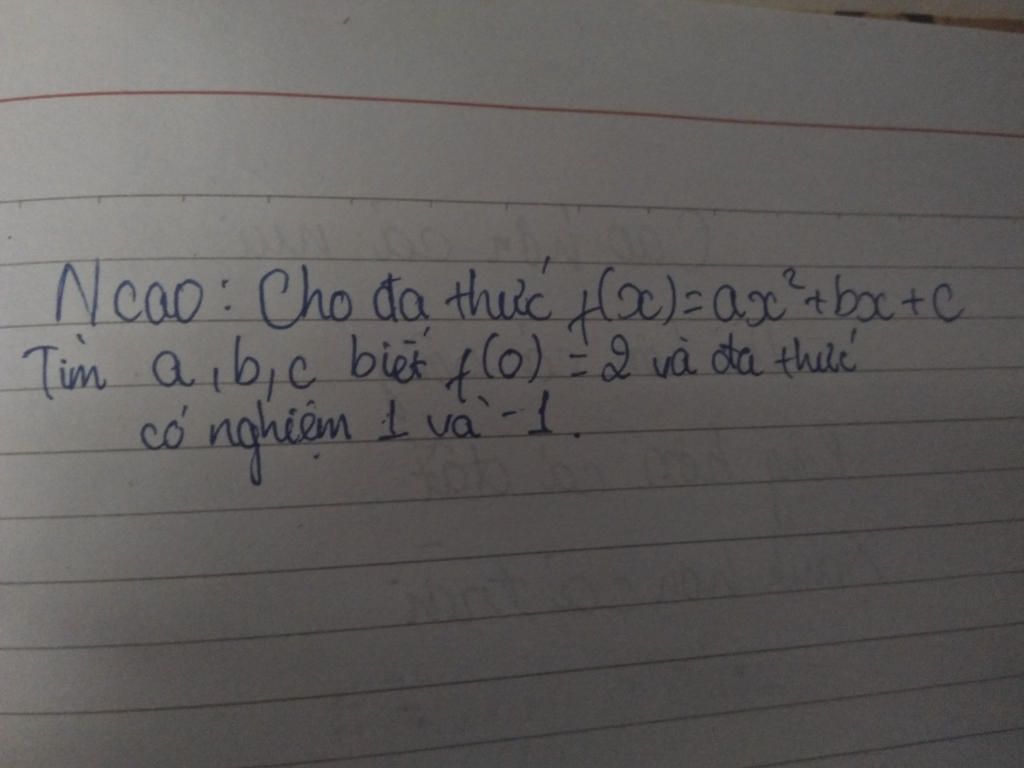 Ncao: Cho đa thức f(x)=ax²+bx+c
Tìm a, b, c biết f(0) = 2 và đa thức
có nghiệm 1 và -1.